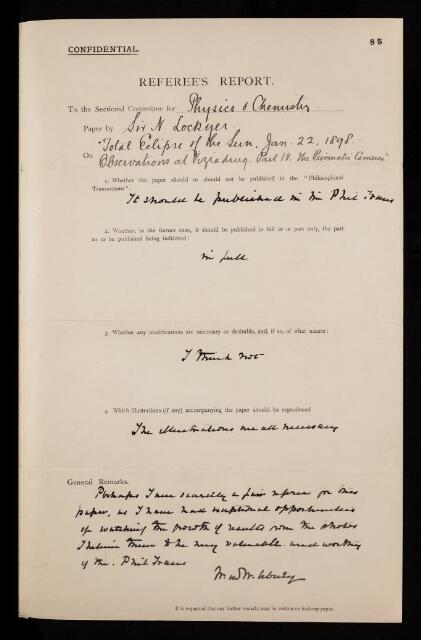 85
CONFIDENTIAL.
REFEREE'S REPORT.
To the Sectional Committee for Physics & Chemistry
Paper by Sir N Lockyer
"Total Eclipse of the Sun, Jan. 22, 1898.
On Observations at Viziadrug. Part IV. The Prismatic Cameras"
1. Whether the paper should or should not be published in the "Philosophical
Transactions":
It should be published in the Phil Trans
2. Whether, in the former case, it should be published in full or in part only, the part
so to be published being indicated:
in full
3. Whether any modifications are necessary or desirable, and, if so, of what nature:
I think not
4. Which illustrations (if any) accompanying the paper should be reproduced
The illustrations are all necessary
General Remarks.
Perhaps I am scarcely a fair referee for this
paper, as I have had exceptional opportunities
of watching the growth of results from the photos
I believe them to be very valuable and worthy
of the Phil Trans
It is requested that any further remarks may be written on foolscap paper.